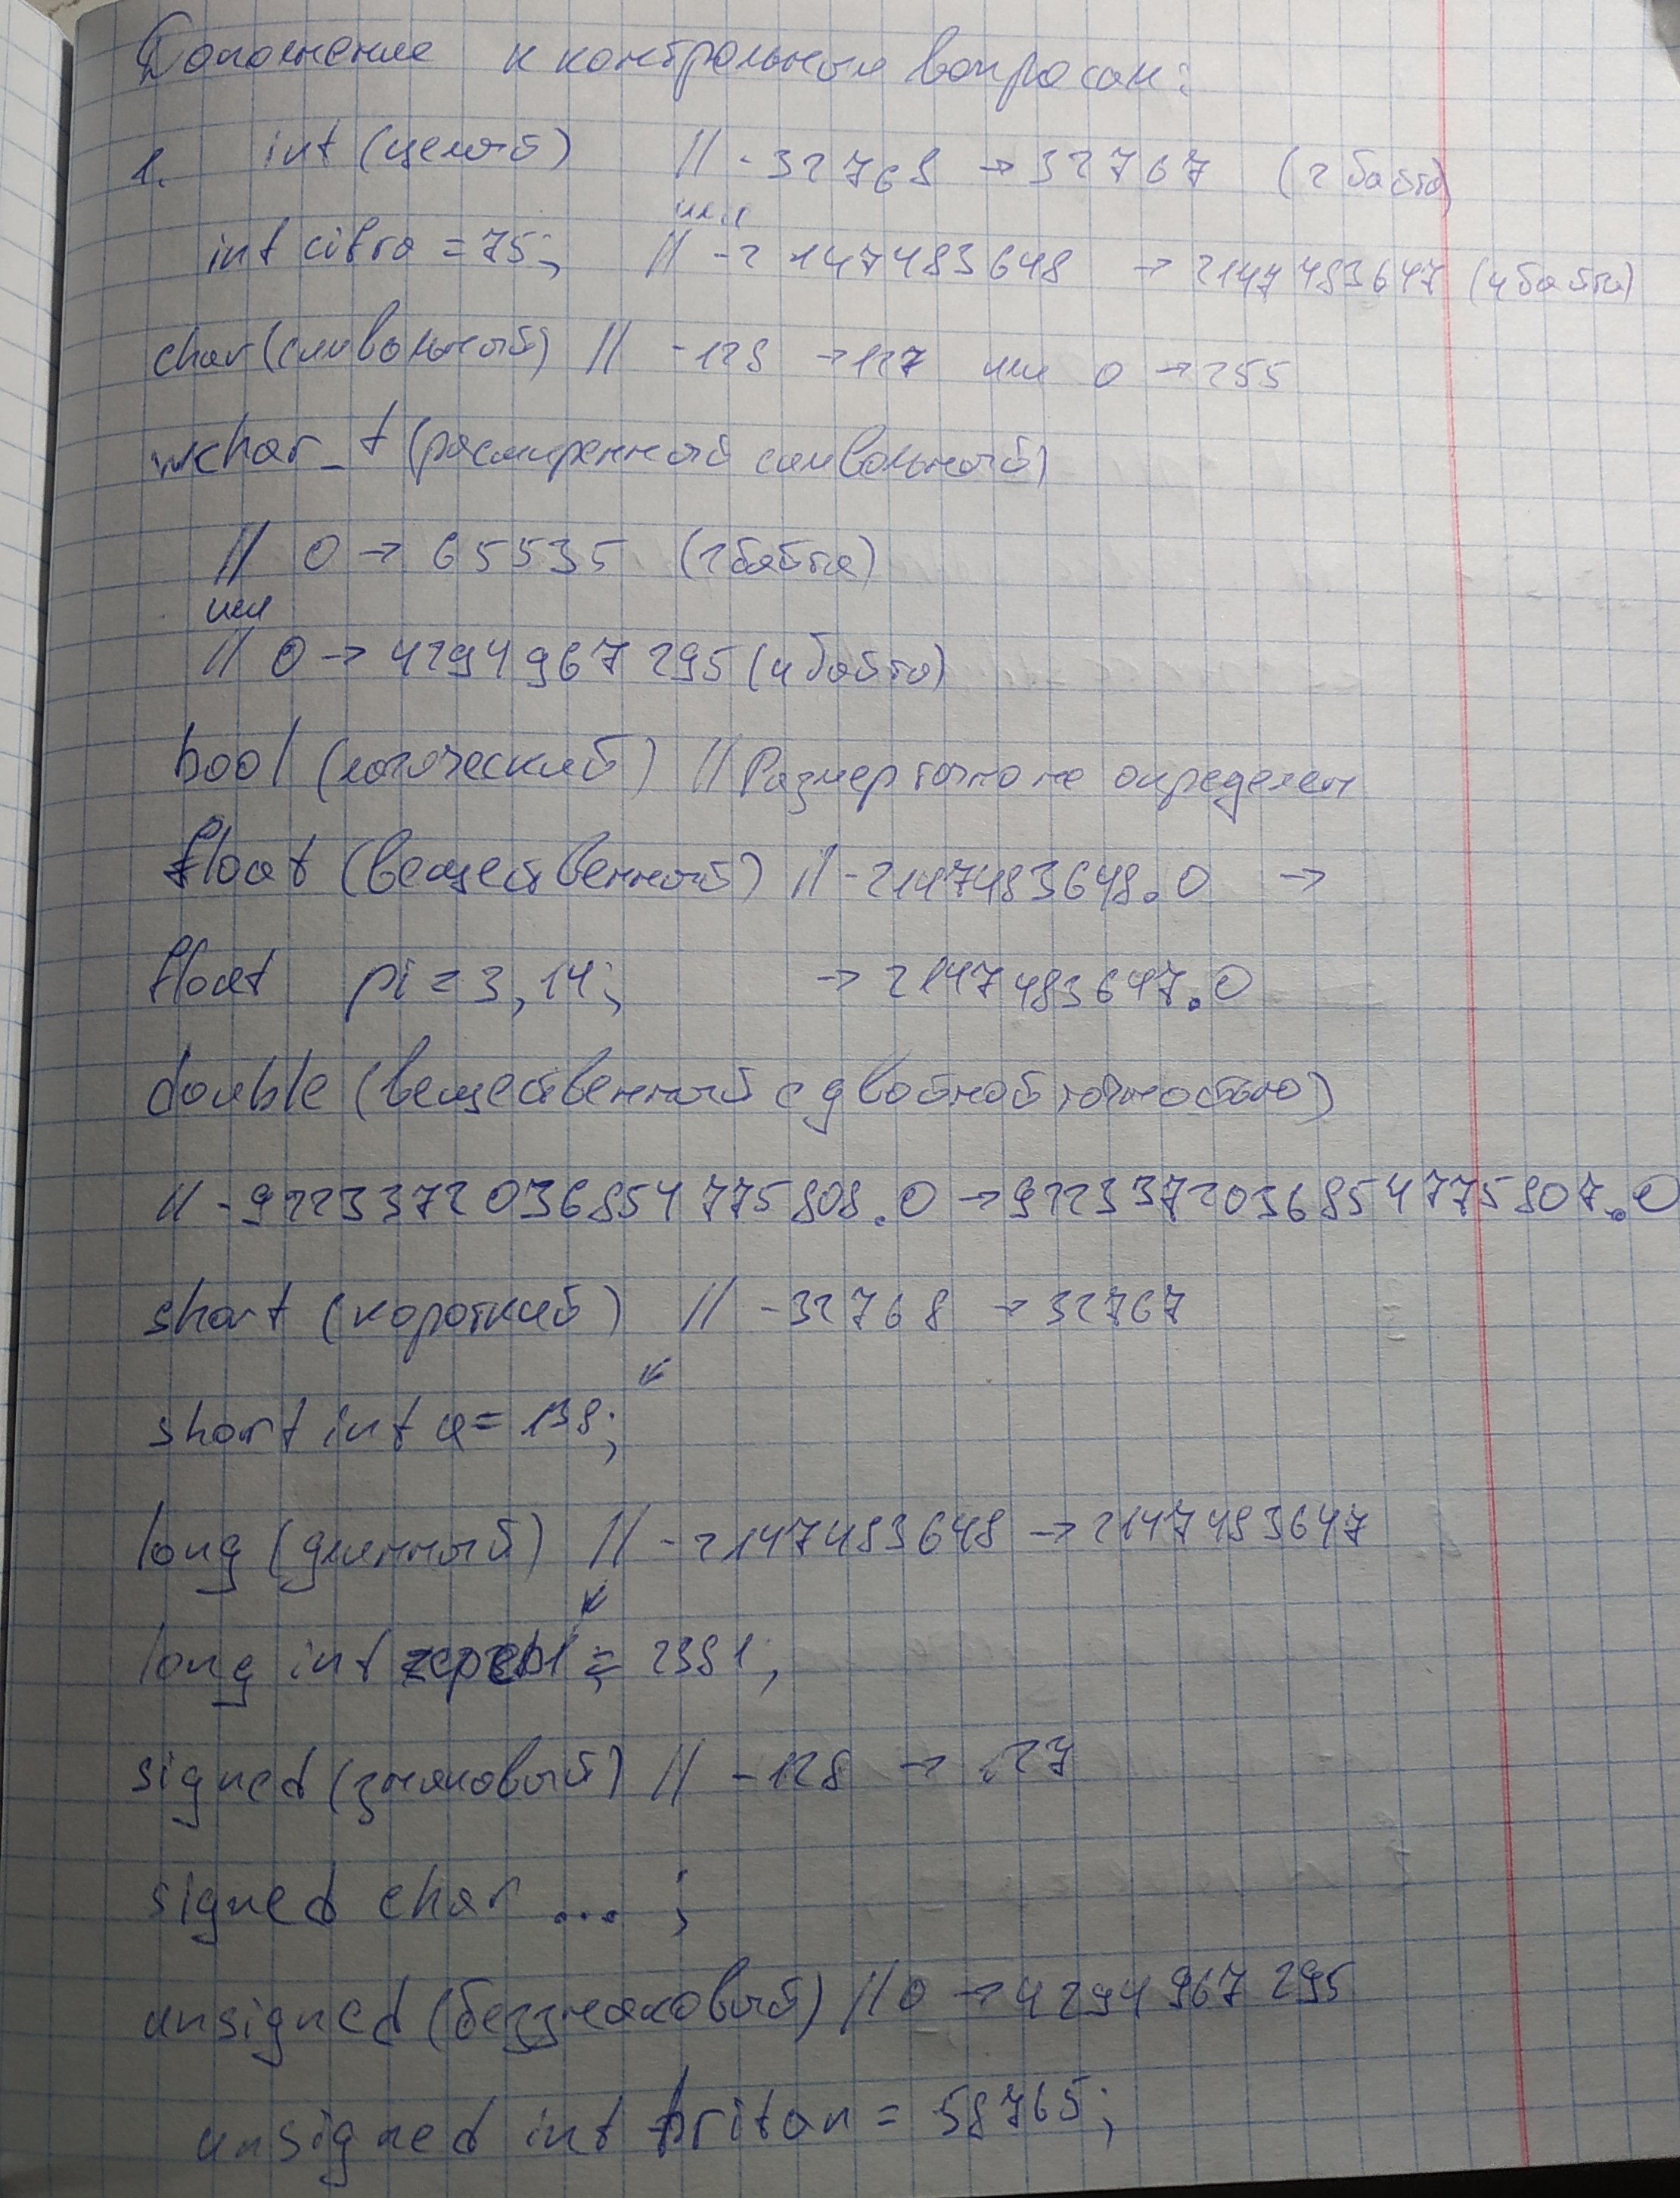 Дополнение к контрольным вопросам:
1. int (целый) // -32768 → 32767 (2 байта)
или
int cifra = 75; // -2147483648 → 2147483647 (4 байта)
char (символьный) // -128 → 127 или 0 → 255
wchar_t (расширенный символьный)
// 0 → 65535 (2 байта)
или
// 0 → 4294967295 (4 байта)
bool (логический) // Размер точно не определен
float (вещественный) // -2147483648.0 →
float pi = 3,14; → 2147483647.0
double (вещественный с двойной точностью)
// -9223372036854775808.0 → 9223372036854775807.0
short (короткий) // -32768 → 32767
short int a = 138;
long (длинный) // -2147483648 → 2147483647
long int = 2381;
signed (знаковый) // -128 → 127
signed char ... ;
unsigned (беззнаковый) // 0 → 4294967295
unsigned int triton = 58765;